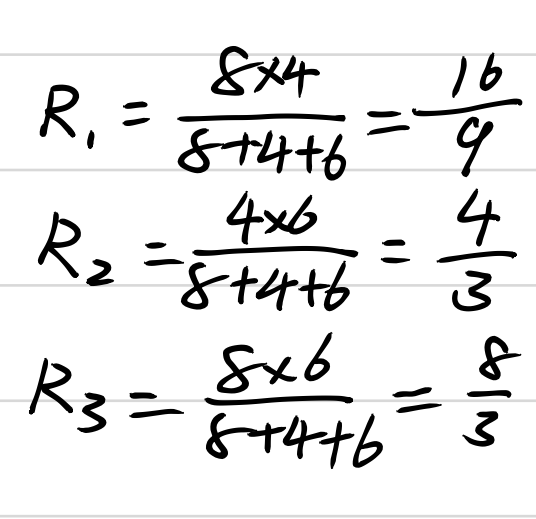 R₁ = (8×4)/(8+4+6) = 16/9
R₂ = (4×6)/(8+4+6) = 4/3
R₃ = (8×6)/(8+4+6) = 8/3